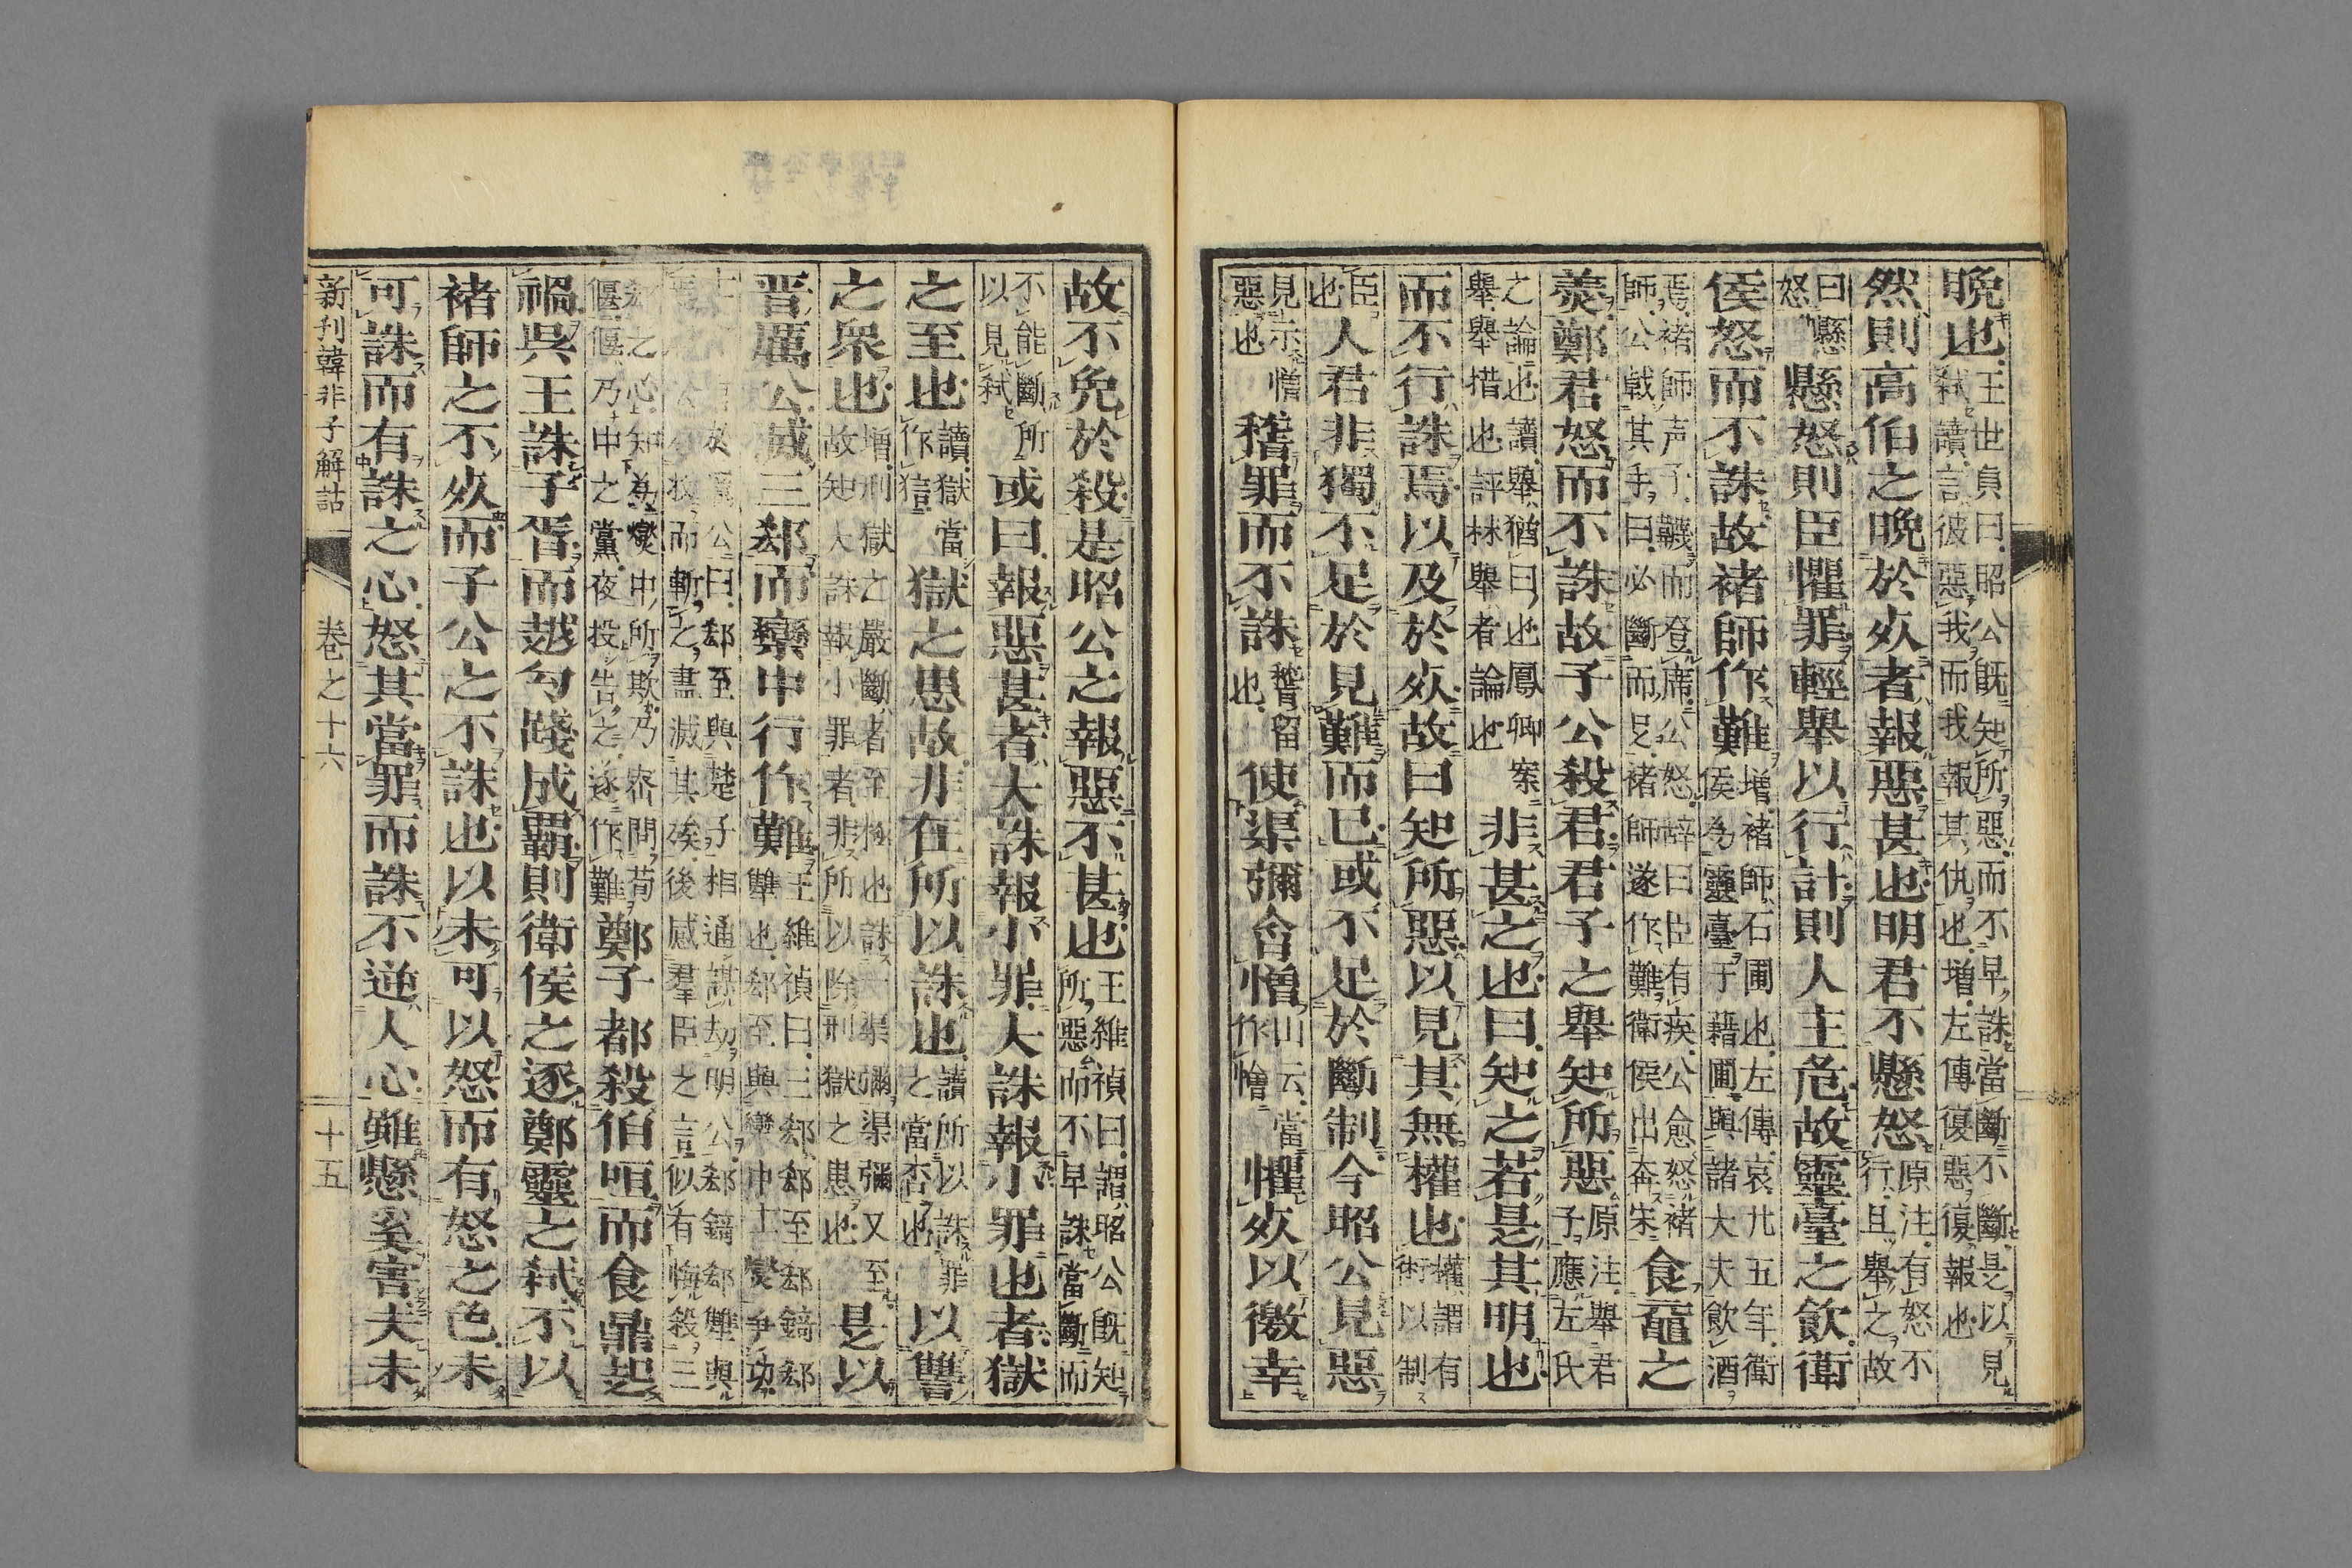 晩也
王世貞曰昭公既知所惡而不早誅當斷不斷是以見
弑讀言彼惡我而我報其仇也増左傳復惡復報也
然則高伯之晩於死者報惡甚也明君不懸怒
原注有怒不
行且舉之故
曰懸
怒
懸怒則臣懼罪輕舉以行計則人主危故靈臺之飲衛
侯怒而不誅故褚師作難
増褚師石圃也左傳哀廿五年衛
侯為靈臺于藉圃與諸大夫飲酒
焉褚師声子韈而登席公怒辭曰臣有疾公愈怒褚
師公戟其手曰必斷而足褚師遂作難衛侯出奔宋
食黿之
羮鄭君怒而不誅故子公殺君君子之舉知所惡
原注舉君
子應左氏
之論也讀舉猶曰也鳳卿案
舉舉措也評林舉者論也
非甚之也曰知之若是其明也
而不行誅焉以及於死故曰知所惡以見其無權也
權謂有
術以制
臣
也
人君非獨不足於見難而已或不足於斷制今昭公見惡
見示憎
惡也
稽罪而不誅
稽留
也
使渠彌含憎
山云當
作憎
懼死以徼幸
故不免於殺是昭公之報惡不甚也
王維禎曰謂昭公既知
所惡而不早誅當斷而
不能斷所
以見弑
或曰報惡甚者大誅報小罪大誅報小罪也者獄
之至也
讀獄當
作
獄之患故非在所以誅也
讀所以誅罪
之當否也
以讐
之衆也
増刑獄之嚴斷者至極也誅一渠彌渠彌又至
故知大誅報小罪者非所以除刑獄之患也
是以
晋厲公滅三郤而欒中行作難
王維禎曰三郤郤至郤錡郤
犨也郤至與欒中士燮爭功
公曰郤至與楚子相通謀劫明公郤錡郤犨與
而斬之盡滅其族後感羣臣之言似有悔殺三
郤之心知為燮中所欺乃密問荀
偃偃乃中之黨夜投告之遂作難
鄭子都殺伯咺而食鼎起
禍吳王誅子胥而越勾踐成覇則衛侯之逐鄭靈之弑不以
褚師之不死而子公之不誅也以未可以怒而有怒之色未
可誅而有誅之心怒其當罪而誅不逆人心雖懸奚害夫未
新刊韓非子解詁　巻之十六　十五